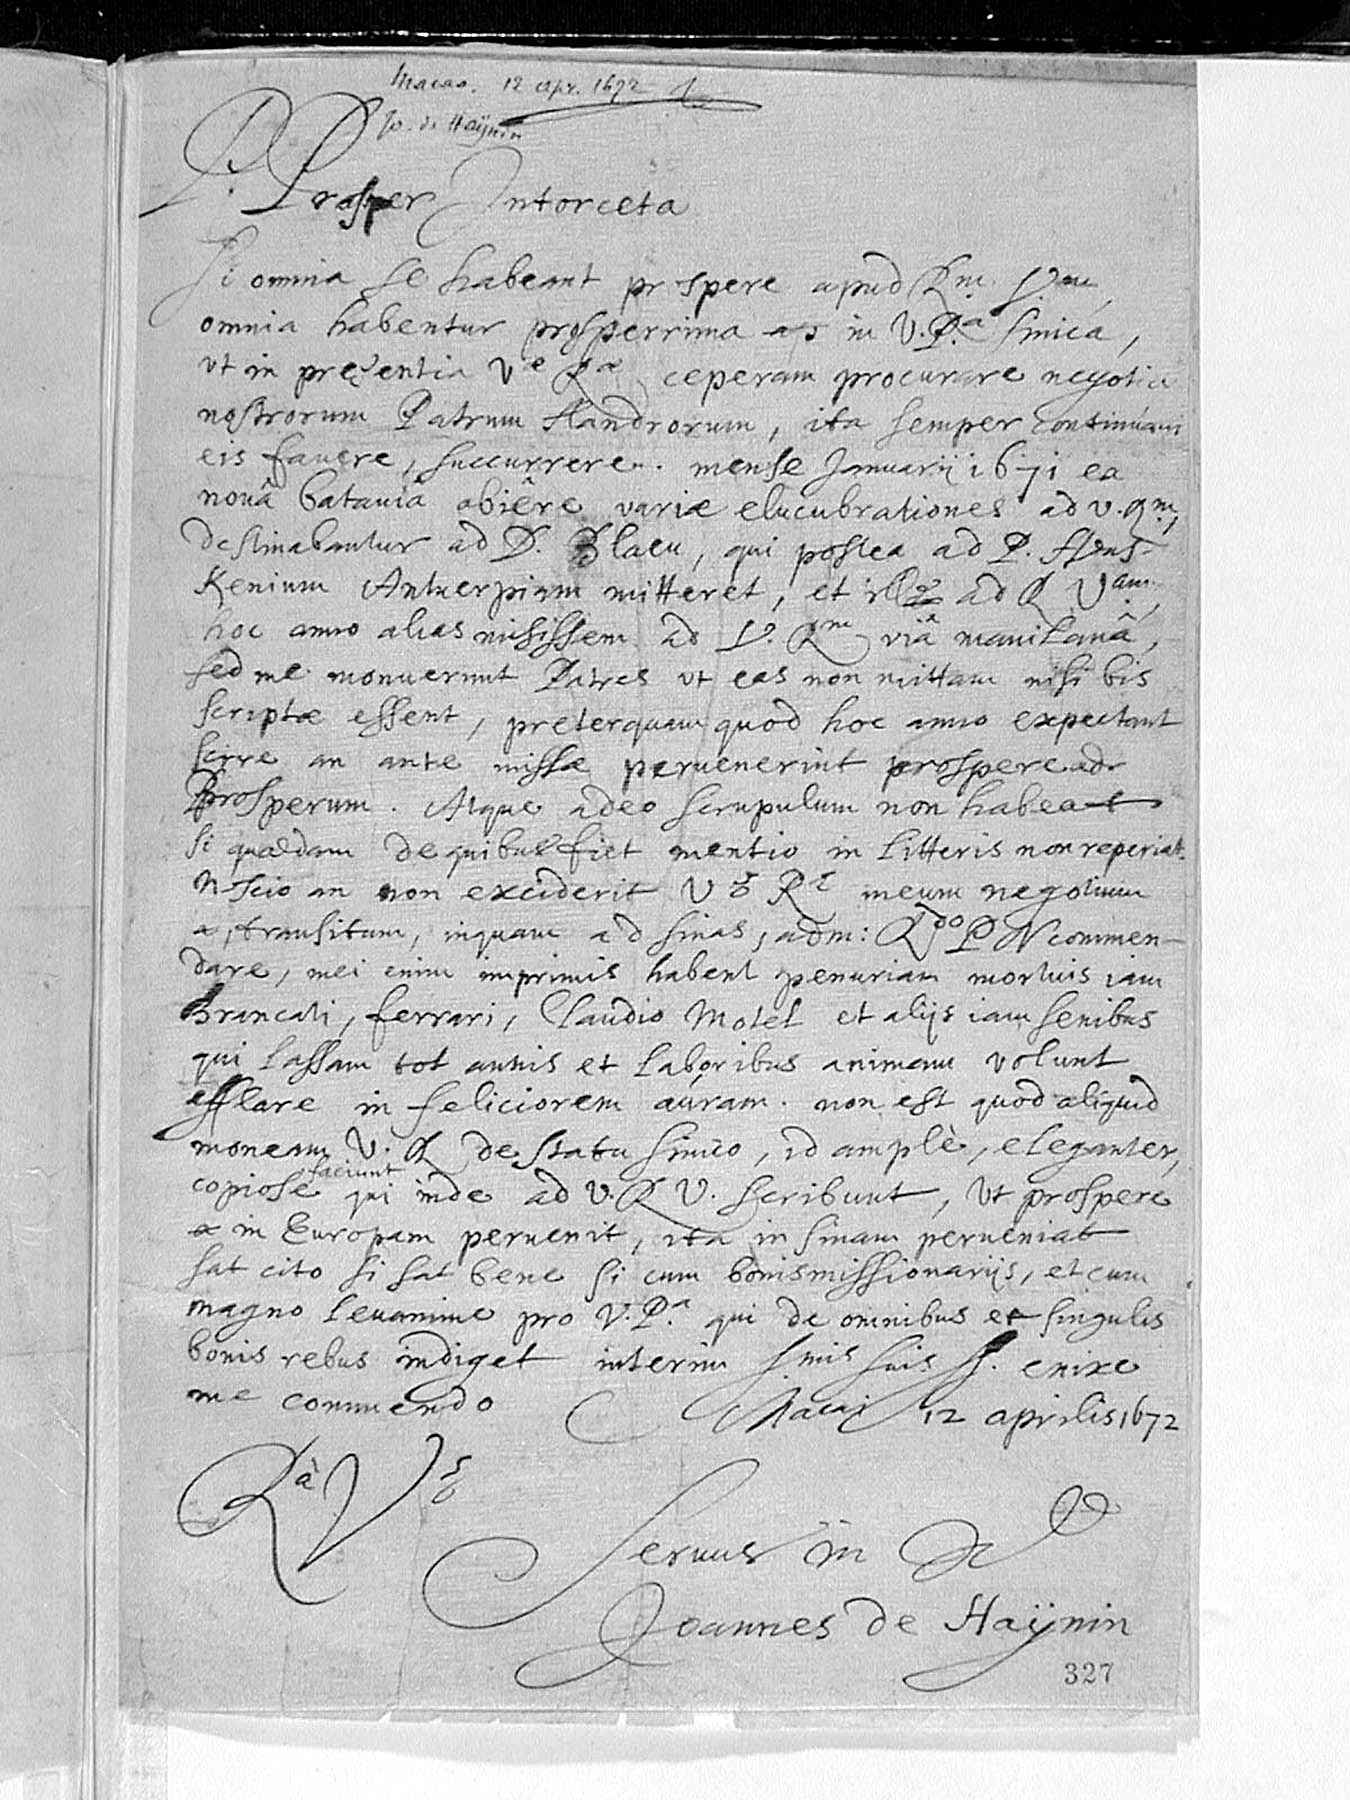 Macao. 12 Apr. 1672
Jo. de Haÿnin
P. Prosper Intorceta
Si omnia se habeant prospere apud Rm. Vam,
omnia habentur prosperrima in V. Pa. sinica,
vt in presentia Ve Ræ ceperam procurare negotia
nostrorum Patrum flandrorum, ita semper continuavi
eis favere, succurrere. mense Januarij 1671 ea
novâ bataviâ abiêre variæ elucubrationes ad v. Rm,
destinabantur ad D. Blaeu, qui postea ad P. Hens-
kenium Antuerpiam mitteret, et ille ad R Vam,
hoc anno alias misissem ad V. Rm viâ manilanâ,
sed me monuerunt Patres vt eas non mittam nisi bis
scriptæ essent, preterquam quod hoc anno expectant
scire an ante missæ peruenerint prospere ad
Prosperum. Atque adeo scrupulum non habeat
si quædam de quibus fiet mentio in litteris non reperiat.
Nescio an non exciderit Væ Ræ meum negotium
transitum, inquam ad sinas, adm: Rdo P N commen-
dare, mei enim imprimis habent penuriam mortuis iam
Brancati, ferrari, Claudio Motel et alijs iam senibus
qui lassam tot annis et laboribus animam volunt
efflare in feliciorem auram. non est quod aliquid
moneam V. R de statu sinico, id amplè, eleganter,
copiose faciunt qui inde ad V. R V. scribunt, Vt prospere
in Europam peruenit, ita in sinam perueniat
sat cito si sat bene si cum bonis missionarijs, et cum
magno levamine pro V. Pa. qui de omnibus et singulis
bonis rebus indiget interim Smis suis SS. enixe
me commendo Macai 12 aprilis 1672
Ræ Væ
Seruus in
Joannes de Haÿnin
327